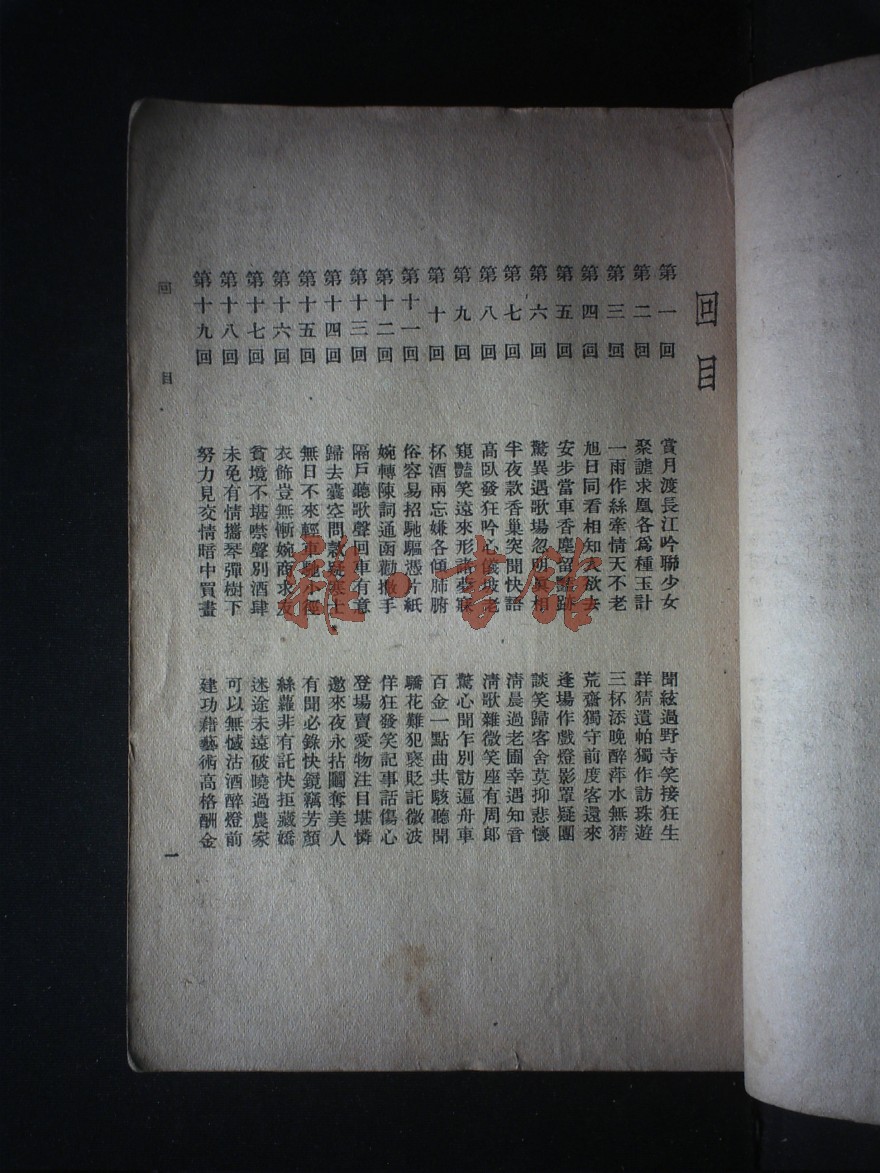 回目
第一回 賞月渡長江吟聯少女 聞絃過野寺笑接狂生
第二回 聚謔求凰各爲種玉計 詳猜遺帕獨作訪珠遊
第三回 一雨作絲牽情天不老 三杯添晚醉萍水無猜
第四回 旭日同看相知人欲去 荒齋獨守前度客還來
第五回 安步當車香塵留豔跡 逢場作戲燈影罩疑團
第六回 驚異遇歌場忽明眞相 談笑歸客舍莫抑悲懷
第七回 半夜款香巢突聞快語 淸晨過老圃幸遇知音
第八回 高臥發狂吟心儀坡老 淸歌雜微笑座有周郎
第九回 窺豔笑遠來形諸夢寐 驚心聞乍別訪逼舟車
第十回 杯酒兩忘嫌各傾肺腑 百金一點曲共駭聽聞
第十一回 俗容易招馳驅憑片紙 驕花難犯褒貶託微波
第十二回 婉轉陳詞通函勸撒手 佯狂發笑記事話傷心
第十三回 隔戶聽歌聲回車有意 登場賣愛物注目堪憐
第十四回 歸去囊空問款疑塞上 邀來夜永拈鬮奪美人
第十五回 無日不來輕車馳小徑 有聞必錄快鏡竊芳顏
第十六回 衣飾豈無慚婉商求友 絲蘿非有託快拒藏嬌
第十七回 貧境不堪噤聲別酒肆 迷途未遠破曉過農家
第十八回 未免有情攜琴彈樹下 可以無憾沽酒醉燈前
第十九回 努力見交情暗中買畫 建功藉藝術高格酬金
回目
一
雜·書館